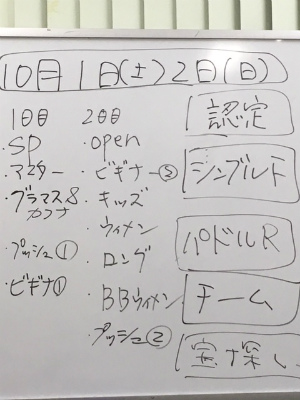 10月1日(土)2日(日)
1日目
・SP
・マスター
・グラマス&
カフナ
・プッシュ①
・ビギナ①
2日目
・open
・ビギナー②
・キッズ
・ウィメン
・ロング
・BBウィメン
・プッシュ②
認定
シングルF
パドルR
チーム
宝探し